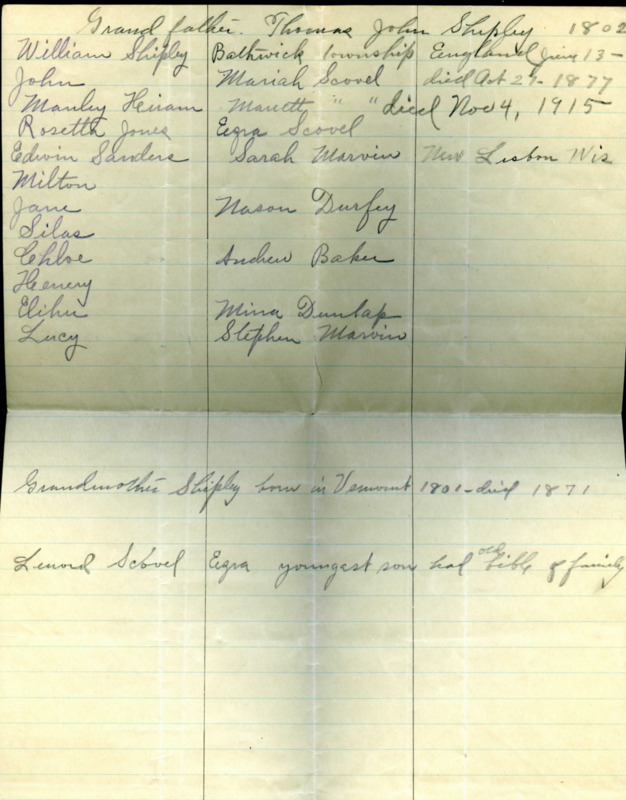 Grand father. Thomas John Shipley 1802
William Shipley Bathwick township England June 13-
John Mariah Scovel died Oct 27-1877
Manley Heiram Mariett " " died Nov 4, 1915
Rosetta Jones Ezra Scovel
Edwin Sanders Sarah Marvin New Lisbon Wis
Milton
Jane Nason Durfey
Silas
Chloe Andrew Baker
Henery
Elihu Mina Dunlap
Lucy Stephen Marvin
Grandmother Shipley born in Vermont 1801-died 1871
Lenord Scovel Ezra youngest son had old bible of family